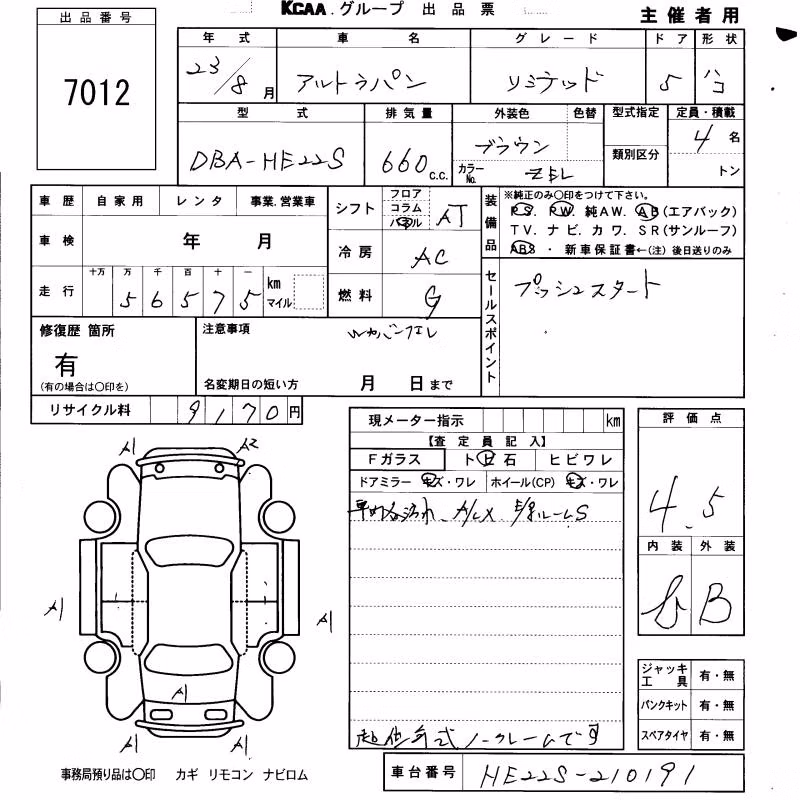 KCAA.グループ 出品票
主催者用
出品番号
7012
年式 車名 グレード ドア 形状
23/8月 アルトラパン リミテッド 5 ハコ
型式 排気量 外装色 色替 型式指定 定員・積載
DBA-HE22S 660c.c. ブラウン 類別区分 4名
カラーNo. ZEL トン
車歴 自家用 レンタ 事業.営業車
車検 年 月
走行 十万 万 千 百 十 一 km マイル
5 6 5 7 5
シフト フロア コラム パネル AT
冷房 AC
燃料 G
装備品
※純正のみ○印をつけて下さい。
PS. PW. 純AW. AB(エアバック)
TV. ナビ. カワ. SR(サンルーフ)
ABS ・ 新車保証書←(注)後日送りのみ
セールスポイント
プッシュスタート
修復歴 箇所
有
(有の場合は○印を)
注意事項
名変期日の短い方 月 日まで
リサイクル料 9170円
現メーター指示 km
【査定員記入】
Fガラス ト ビ 石 ヒビワレ
ドアミラー キズ・ワレ ホイール(CP) キズ・ワレ
評価点
4.5
内装 外装
B
A1 A2
A1
A1
A1
A1 A1
ノークレームです
ジャッキ工具 有・無
パンクキット 有・無
スペアタイヤ 有・無
事務局預り品は○印 カギ リモコン ナビロム
車台番号 HE22S-210191